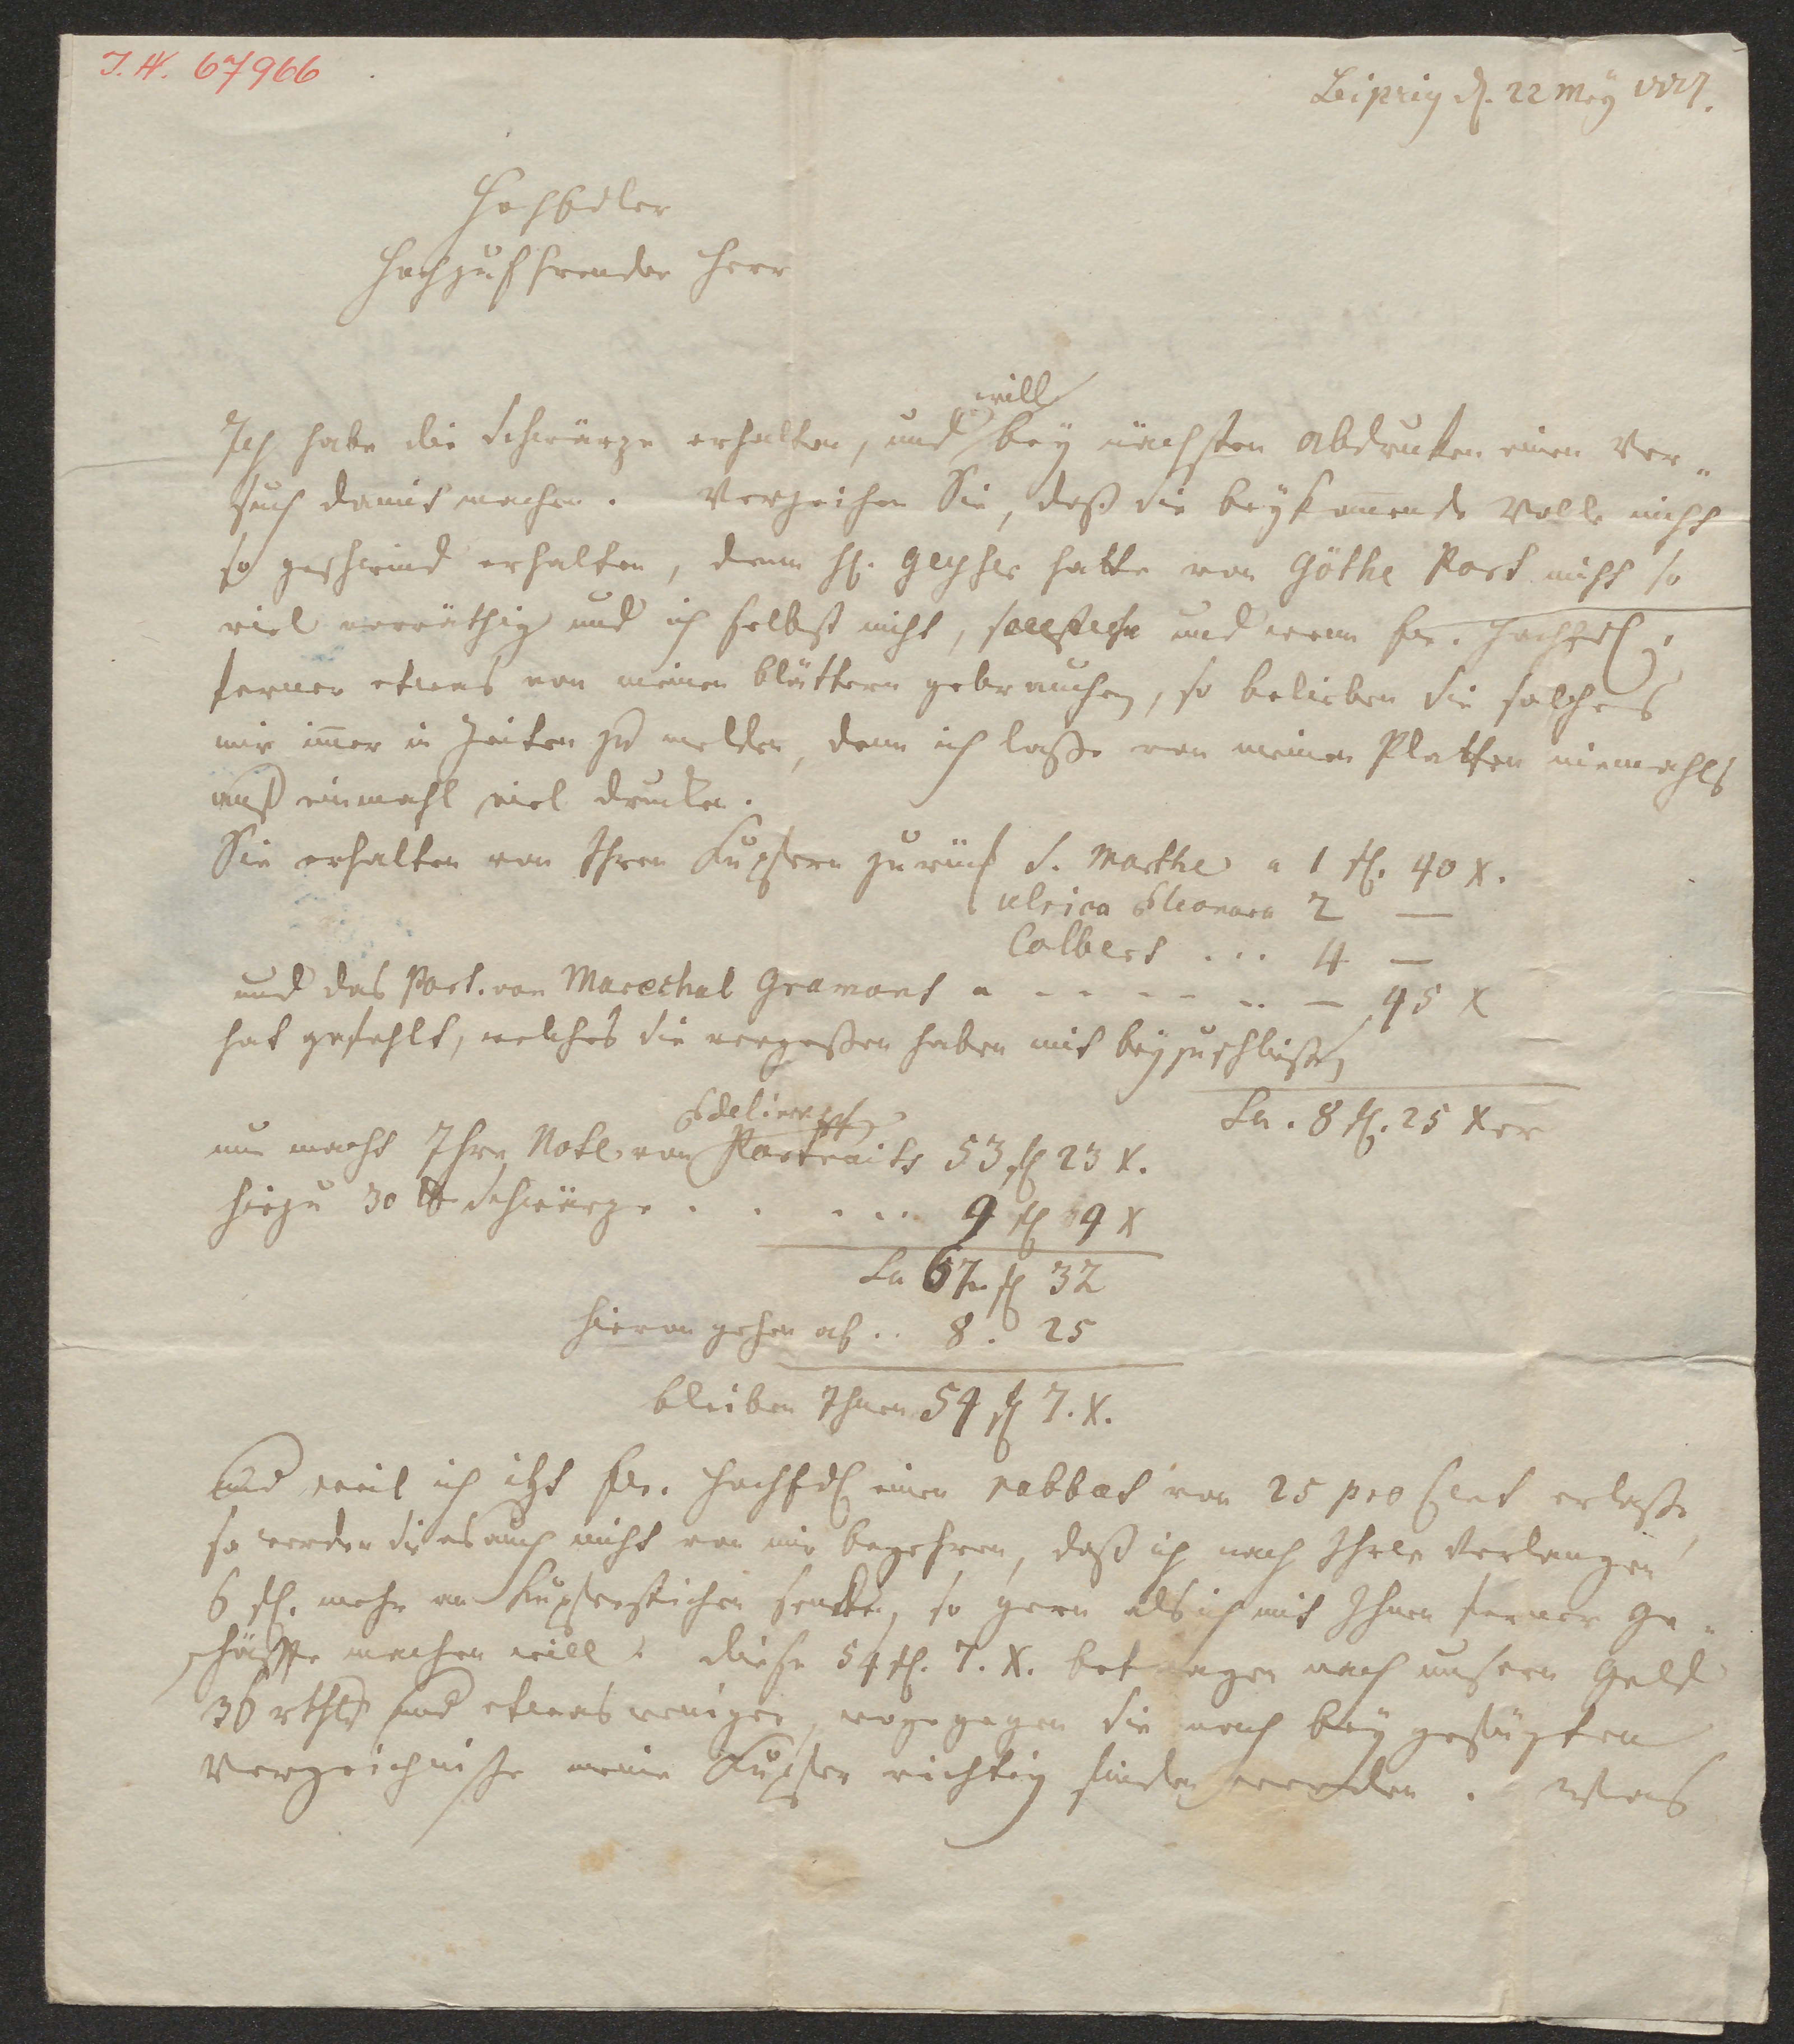 J. N. 67966
Leipzig d. 22 Mey 1777.
HochEdler
Hochzuehrender Herr
will
Ich habe die Schwärze erhalten, und bey nächsten Abdrucken einen Ver„
such damit machen. Verzeihen Sie, daß Sie beykommende Rolle nicht
so geschwind erhalten, denn H. Geyser hatte von Göthe Port nicht so
viel vorräthig und ich selbst nicht, und wenn Ew. HochEdl.
ferner etwas von meinen Blättern gebrauchen, so belieben Sie solches
mir immer in Zeiten zu melden, denn ich laße von meinen Platten niemahls
auf einmahl viel drucken.
Sie erhalten von Ihren Kupfern zurück S. Marthe a 1 fl. 40 x.
Ulrica Eleonora 2 —
Colbert ... 4 —
und das Port. von Marechal Gramont a - - - - - — 45 x
hat gefehlt, welches Sie vergeßen haben mit beyzuschließen
Sa. 8 fl. 25 xer
Edelinck
nun macht Ihre Note von Portraits 53 fl 23 x.
hiezu 30 ℔ Schwärze . . . . . . 9 fl 9 x
Sa 62 fl 32
hievon gehen ab .. 8 . 25
bleiben Ihnen 54 fl 7. x.
Und weil ich itzt Ew. HochEdl einen rabbat von 25 pro Cent erlaße,
so werden Sie es auch nicht von mir begehren, daß ich nach Ihren Verlangen
6 fl. mehr an Kupferstichen senden, so gern als ich mit Ihnen ferner Ge„
schäffte machen will. diese 54 fl. 7. x. betragen nach unsern Geld
36 rthlr und etwas weniger, wogegen Sie nach beygefügten
Verzeichniße meine Kupfer richtig finden werden. Was